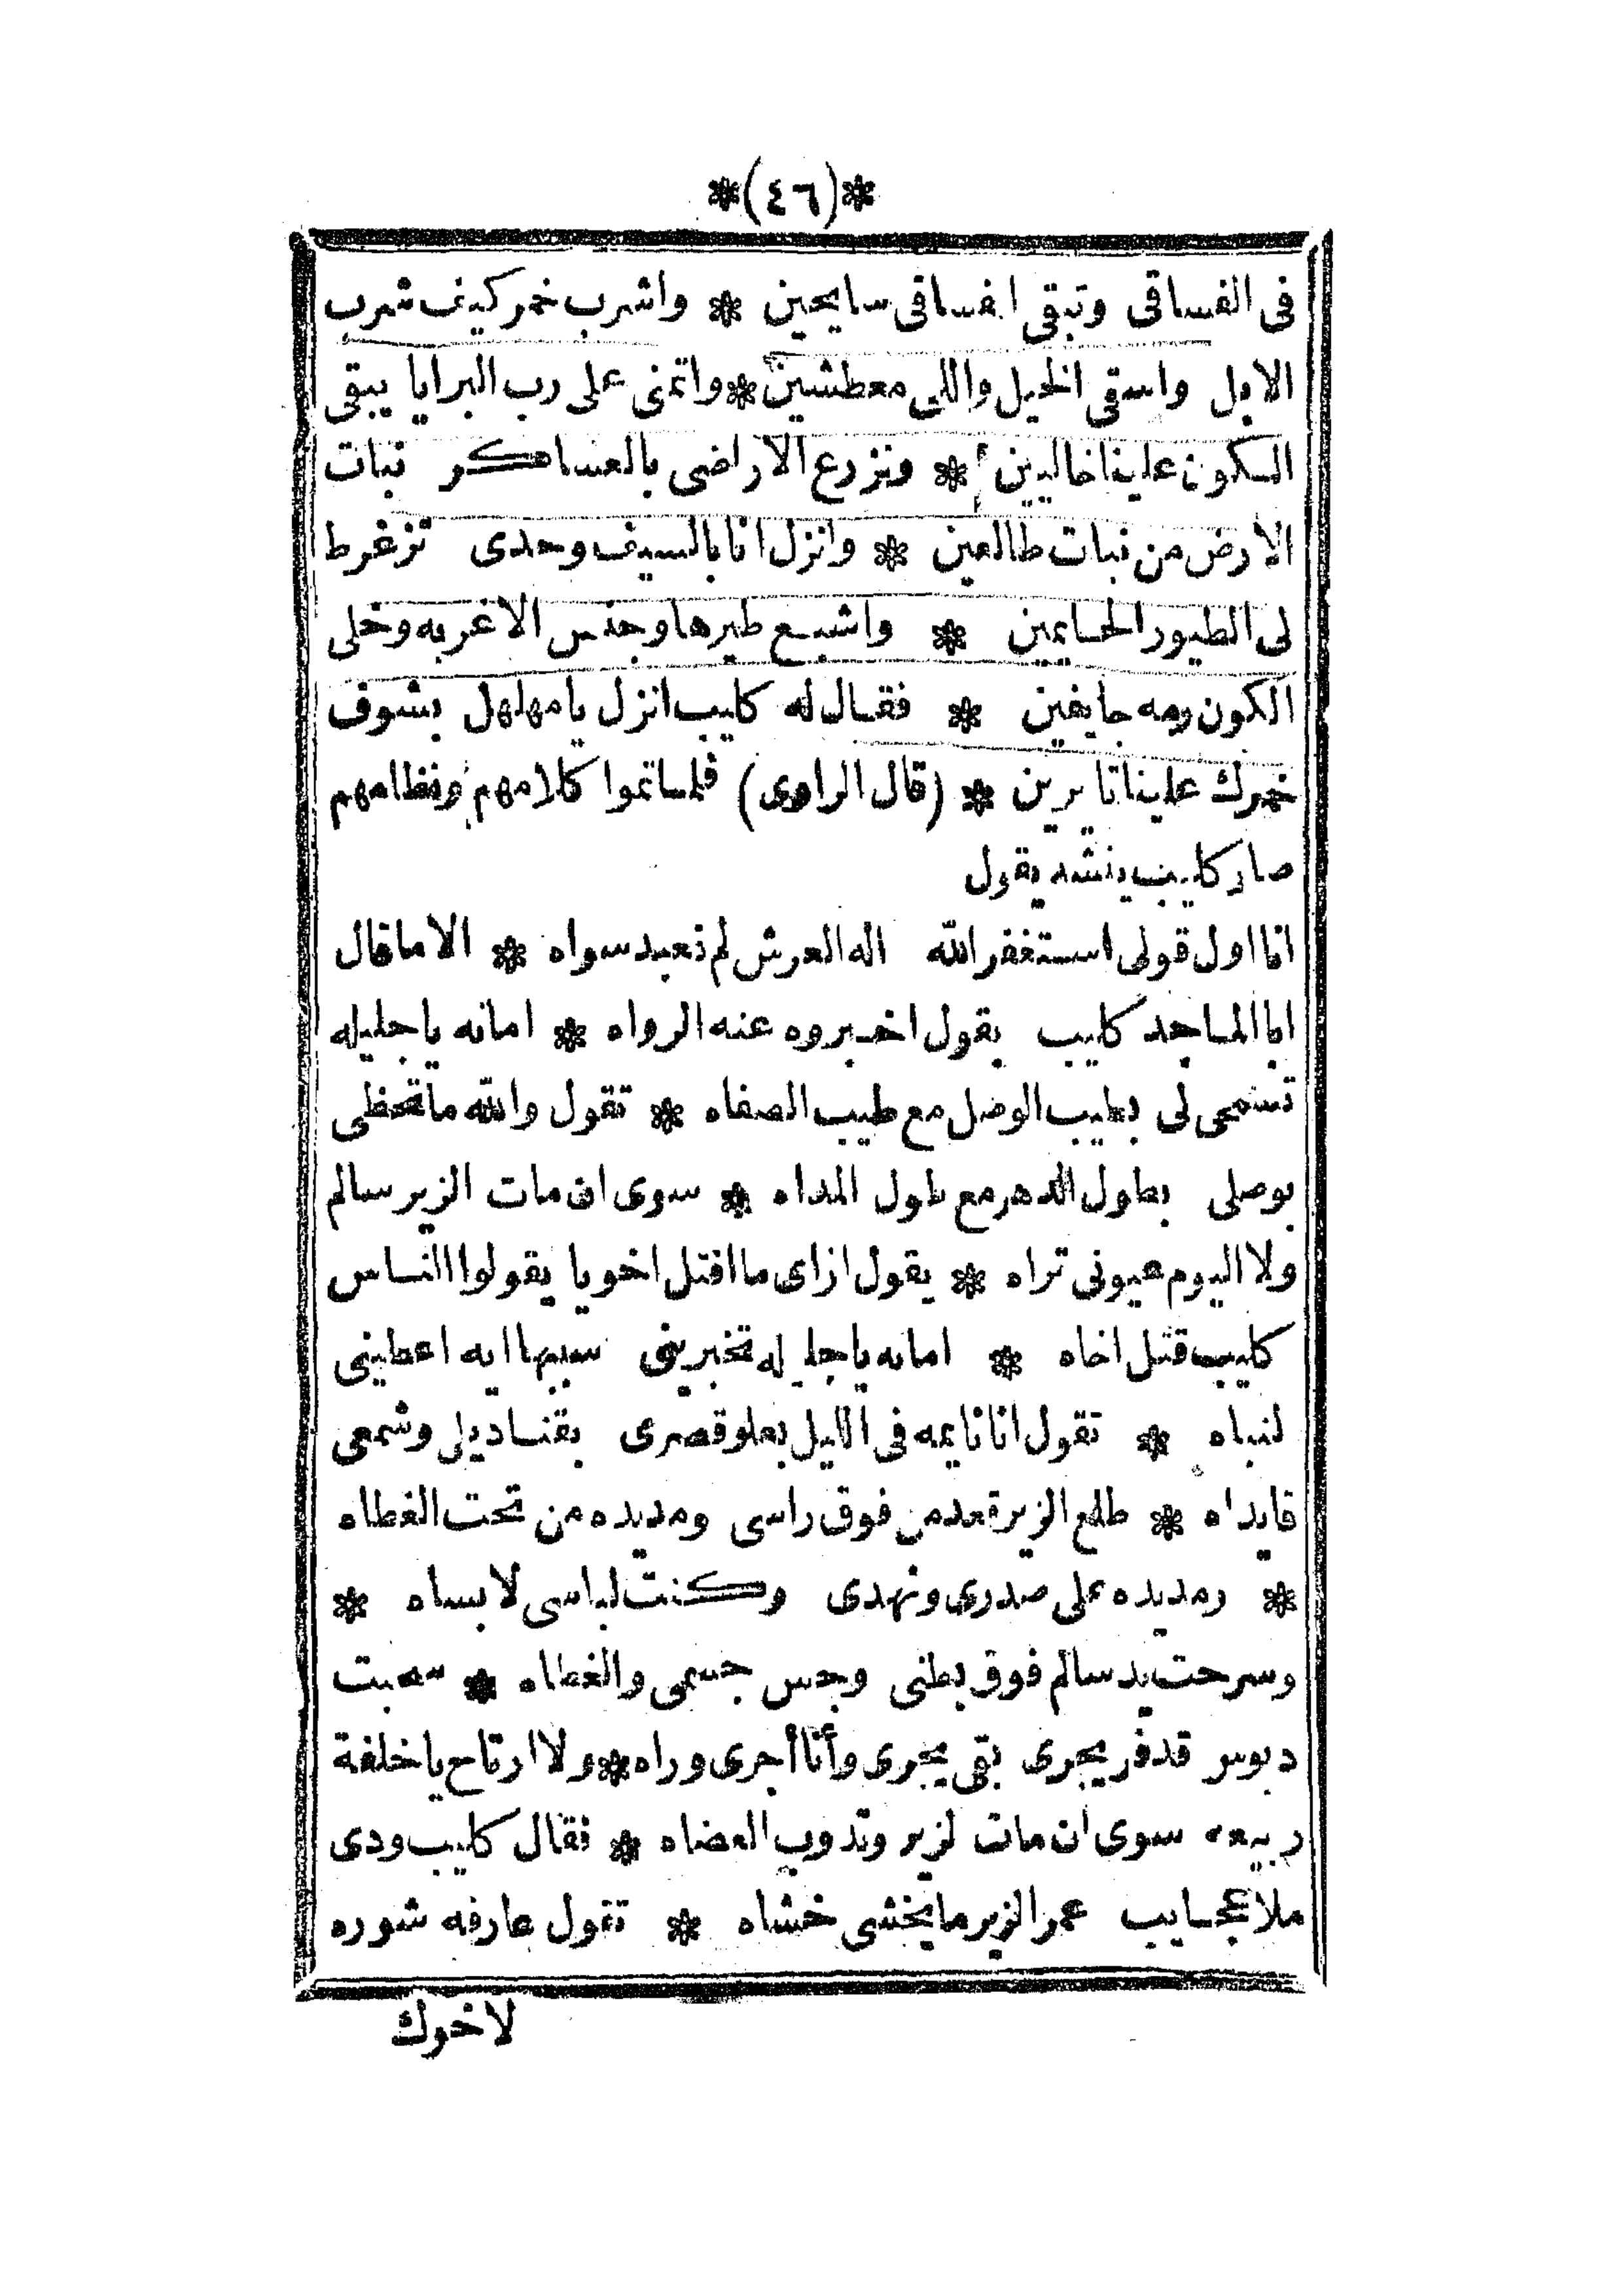 *(٤٦)*
فى الفساقى وتبقى الفساقى سايحين * واشرب خمر كيف شرب
الابل واسقى الخيل واللى معطشين * واتمنى على رب البرايا يبقى
السكون علينا خالدين * ونزرع الاراضى بالعساكر نبات
الارض من نبات طالعين * وانزل انا بالسيف وحدى تزغرط
لى الطيور الحايمين * واشبع طيرها وجنس الاغربه وخلى
الكون رمه جايفين * فقال له كليب انزل يا مهلهل بشوف
خمرك علينا تايرين * (قال الراوى) فلما تموا كلامهم ونظامهم
صار كليب ينشد يقول
انا اول قولى استغفر الله اله العرش لم نعبد سواه * الا ما قال
ابا الماجد كليب بقول اخبروه عنه الرواه * امانه يا جليله
تسمحى لى بطيب الوصل مع طيب الصفاه * تقول والله ما تحظى
بوصلى بطول الدهر مع طول المداه * سوى ان مات الزير سالم
ولا اليوم عيونى تراه * يقول ازاى ما اقتل اخويا يقولوا الناس
كليب قتل اخاه * امانه يا جليله تخبرينى سببها ايه اعطينى
لنباه * تقول انا نايمه فى الليل بعلو قصرى بقناديلى وشمعى
قايداه * طلع الزير قعد من فوق راسى ومد يده من تحت الغطاه
* ومد يده على صدرى ونهدى وكنت لباسى لابساه *
وسرحت يد سالم فوق بطنى وجس جسمى والغطاه * سحبت
دبوس قد فر يجرى بقى يجرى وأنا أجرى وراه * ولا ارتاح يا خلفة
ربيعه سوى ان مات لزير وتدوب العضاه * فقال كليب ودى
ملا عجايب عمر الزير ما يخشى خشاه * تقول عارفه شوره
لاخوك